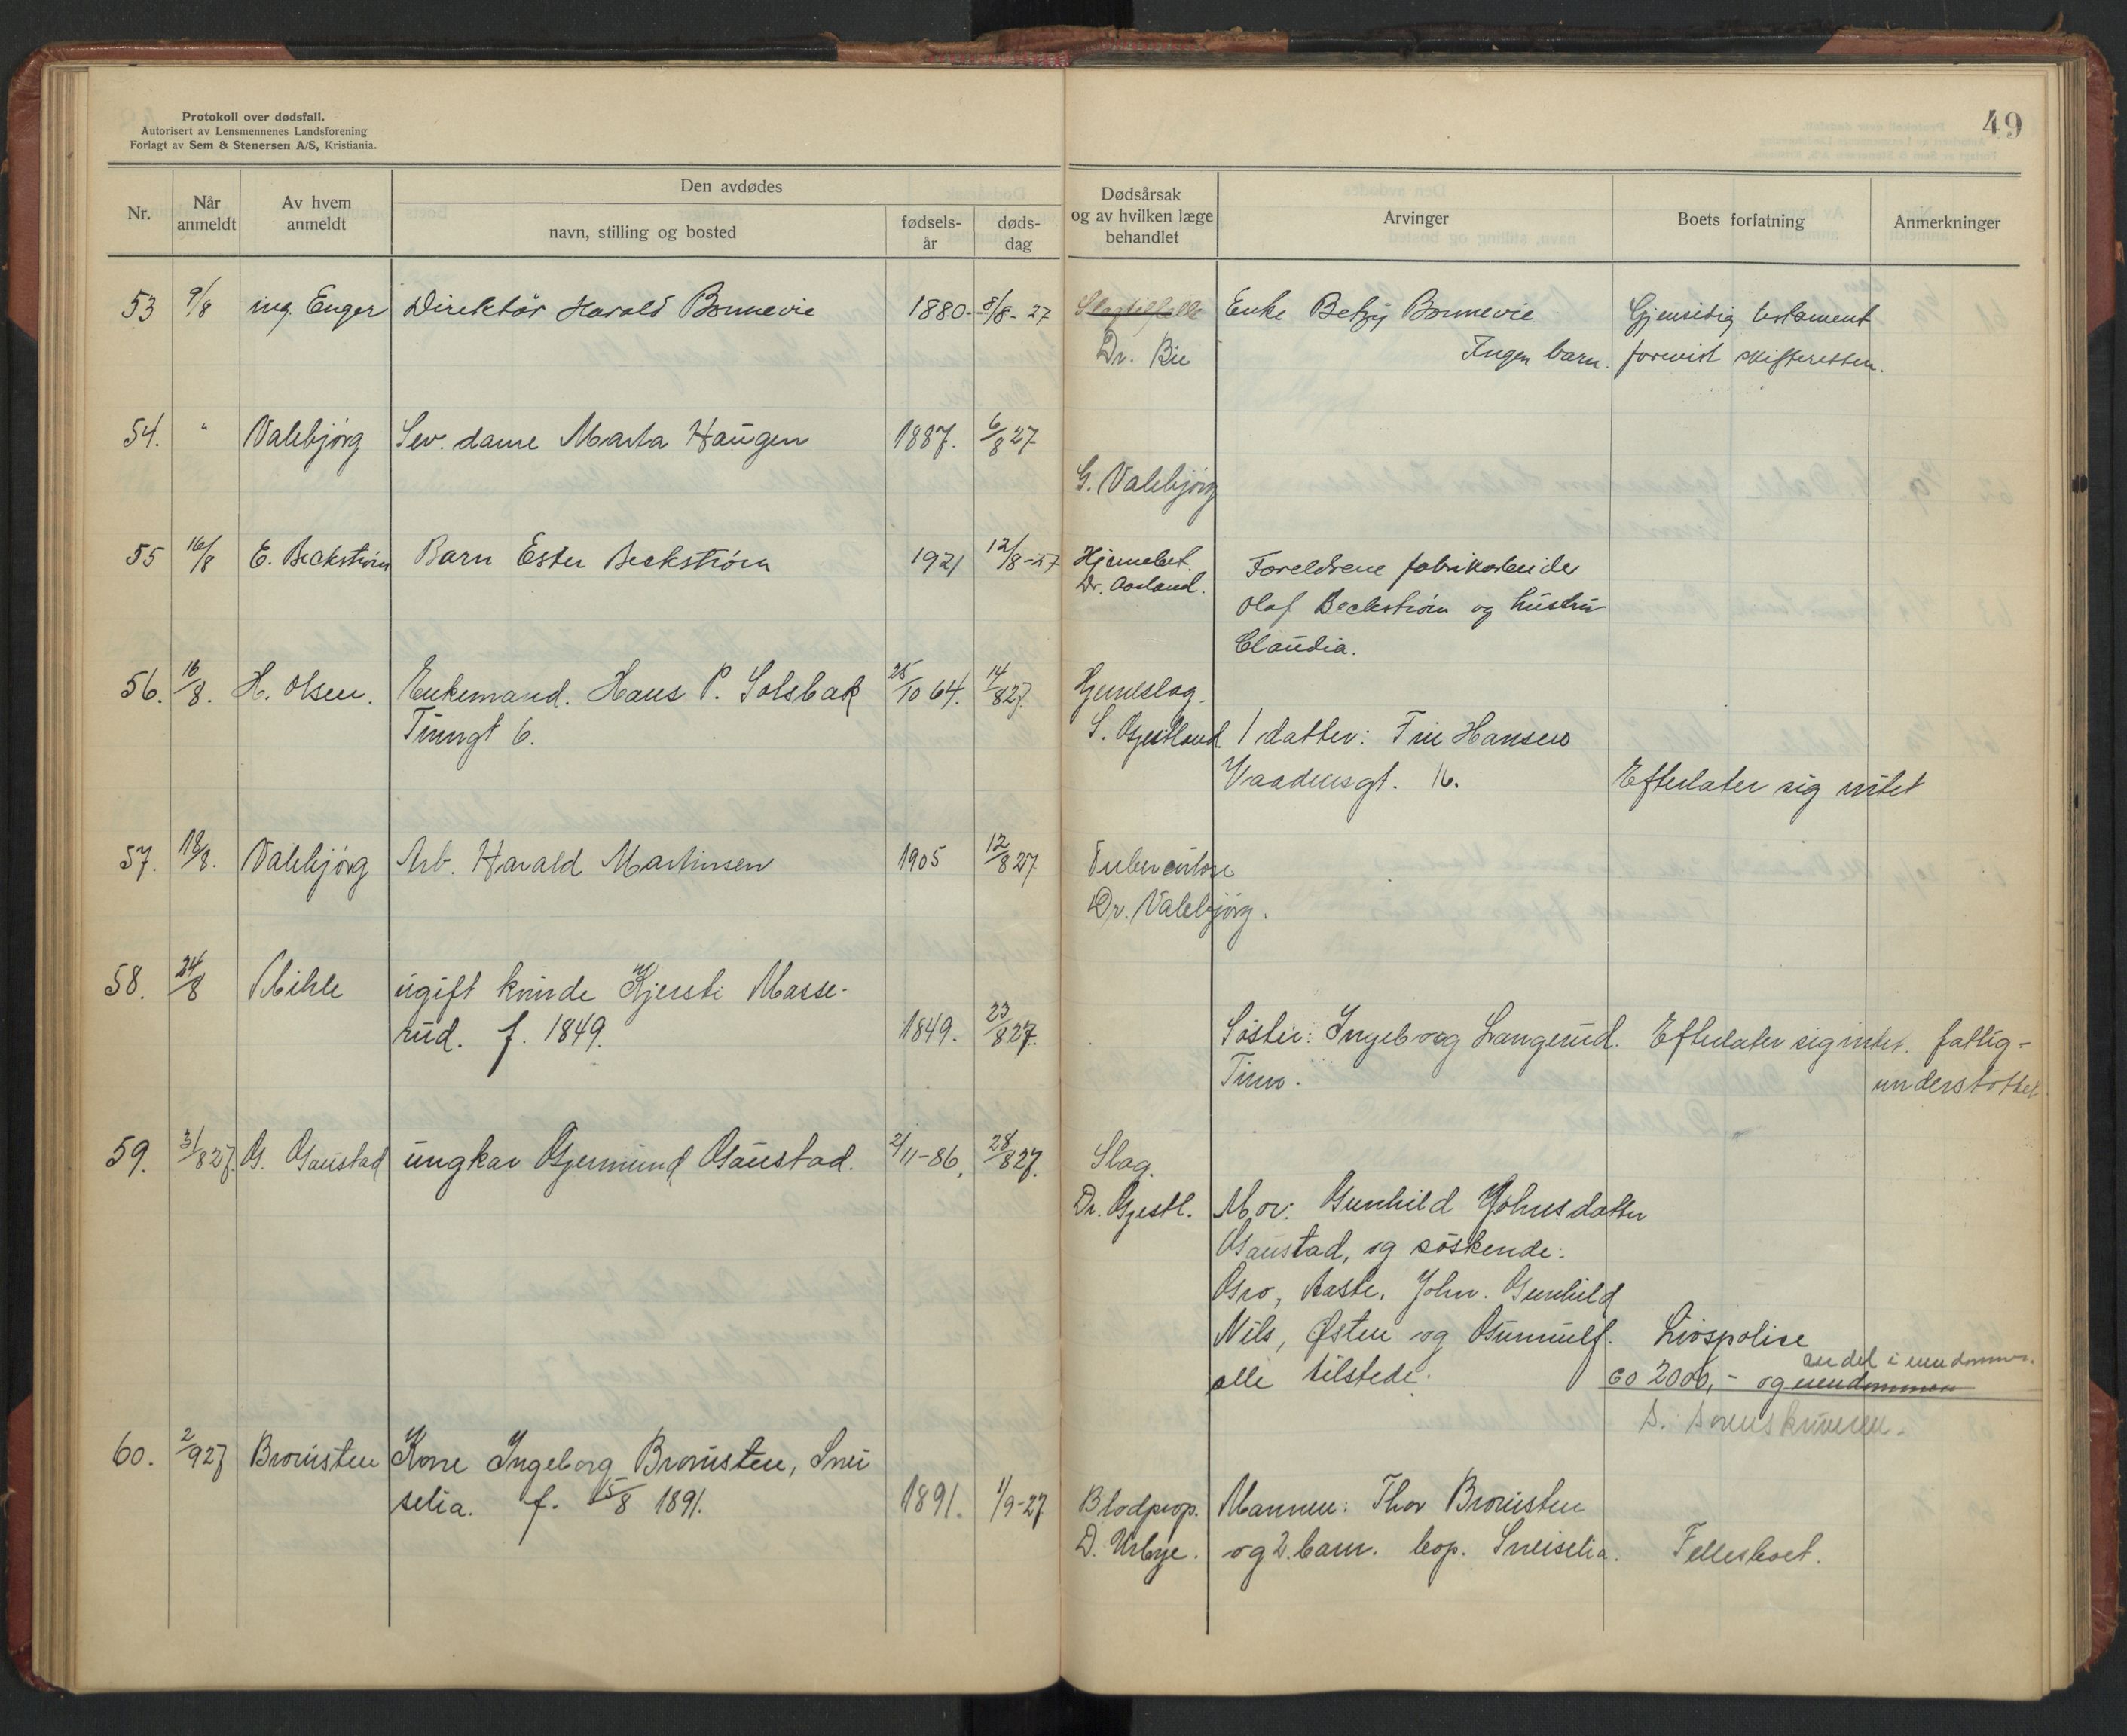 Protokoll over dødsfall.
Autorisert av Lensmennenes Landsforening
Forlagt av Sem & Stenersen A/S, Kristiania.
49
Nr.
Når anmeldt
Av hvem anmeldt
Den avdødes
navn, stilling og bosted
fødsels-år
døds-dag
Dødsårsak og av hvilken læge behandlet
Arvinger
Boets forfatning
Anmerkninger
53 9/8 ing. Enger Direktør Harald Bonnevie 1880 - 8/8 - 27 Slagtilfelle Enke Betzy Bonnevie Gjensidig testament
Dr. Bie Ingen barn. forevist skifteretten.
54. " Valebjørg Sev. dame Marta Haugen 1887. 6/8 27
G. Valebjørg
55 16/8 E. Beckstrøm Barn Ester Beckstrøm 1921 12/8-27 Hjernebet. Foreldrene fabrikarbeider
Dr. Aaland. Olaf Beckstrøm og hustru
Claudia.
56. 16/8. H. Olsen. Enkemand. Hans P. Solsbak 25/10 64. 14/8 27. Hjerneslag.
Tinngt 6. S. Gjestland 1 datter: Fru Hansen
Vaadensgt. 16. Efterlater sig intet
57. 18/8. Valebjørg Arb. Harald Martinsen 1905 12/8 27. Tuberculose
Dr. Valebjørg.
58. 24/8 Mihle ugift kvinde Kjersti Masse-
rud. f. 1849. 1849. 23/8 27. Søster: Ingeborg Langerud. Efterlater sig intet. fattig-
Tinn. understøttet
59. 31/8 27. G. Gaustad ungkar Gjermund Gaustad. 2/11-86, 28/8 27. Slag.
Dr. Gjestl. Mor: Gunhild Johnsdatter
Gaustad, og søskende:
Gro, Aaste, John. Gunhild
Nils, Østen og Gunnulf. Livspolise
alle tilstede. co 2000,- og eiendommen andel i eiendommen.
60. 2/9 27 Brouisten Kone Ingeborg Brouisten, Snei
selia. f. 15/8 1891. 1891. 1/9-27 Blodprop. Mannen: Thor Brouisten
D. Urbye. og 2 barn. bop. Sneiselia. Fellesboet.